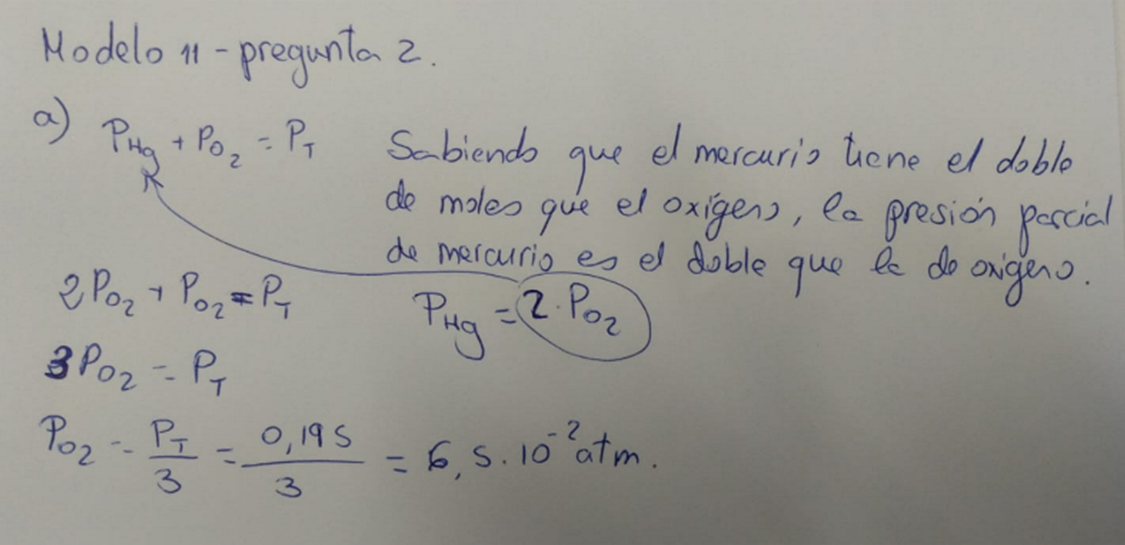 Modelo 11 - pregunta 2.
a) P_Hg + P_O₂ = P_T
Sabiendo que el mercurio tiene el doble
de moles que el oxígeno, la presión parcial
de mercurio es el doble que la de oxígeno.
P_Hg = 2 · P_O₂
2P_O₂ + P_O₂ = P_T
3P_O₂ = P_T
P_O₂ = P_T/3 = 0,195/3 = 6,5 · 10⁻² atm.